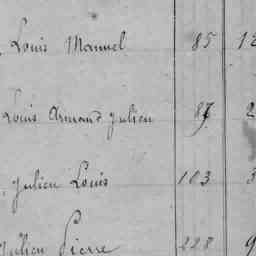 Louis Manuel 85 12
Louis Armand Julien 87 2
Julien Louis 103 3
Julien Pierre 228 9